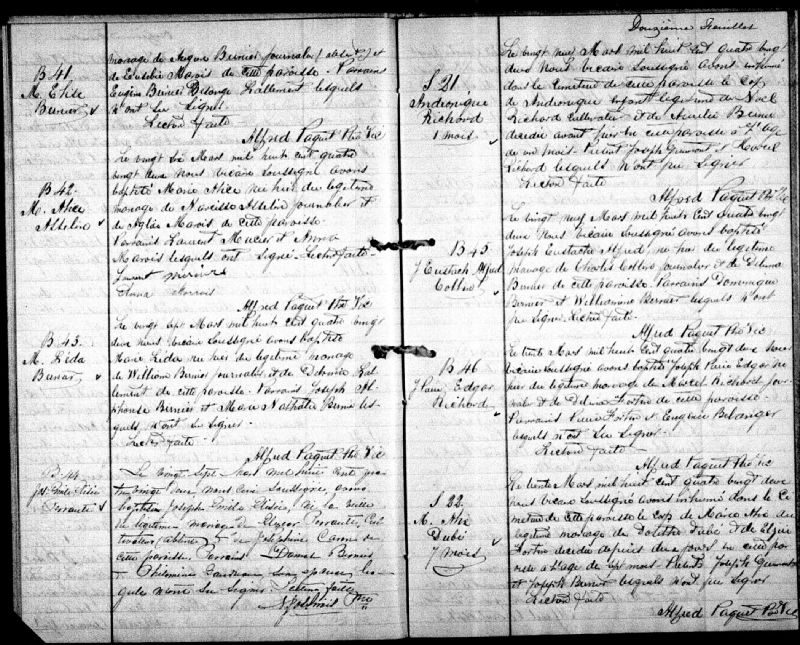 B 41
M. Elise
Bernier
mariage de Bernier journalier et
de Marois de cette paroisse. Parrains
Eugène Bernier lesquels
n'ont su signer.
Lecture faite
Alfred Paquet Ptre Vic
B 42
M. Alice
Le vingt Mars mil huit cent quatre
vingt deux nous vicaire soussigné avons
baptisé Marie Alice née hier du légitime
mariage de Narcisse journalier et
de Aglaé Marois de cette paroisse.
Parrains Laurent Mercier et Anna
Marois lesquels ont signé. Lecture faite.
Laurent mercier
Anna
Alfred Paquet Ptre Vic
B 43
M. Lida
Bernier
Le vingt sept Mars mil huit cent quatre vingt
deux nous vicaire soussigné avons baptisé
Marie Lida née hier du légitime mariage
de William Bernier journalier et de
de cette paroisse. Parrains Joseph Al-
phonse Bernier et Marie Nathalie Bernier les-
quels n'ont su signer.
Lecture faite
Alfred Paquet Ptre Vic
B 44
Jos. Emile Elisée
Le vingt sept Mars mil huit cent qua-
tre vingt deux nous curé soussigné avons
baptisé Joseph Emile Elisée, né la veille
du légitime mariage de Elzear cul-
tivateur et de Joséphine Caron de
cette paroisse. Parrains Bernier
et Philomène son épouse les-
quels n'ont su signer. Lecture faite
Ptre
Douzième Feuillet
S 21
Andronique
Richard
1 mois
Le vingt neuf Mars mil huit cent quatre vingt
deux nous vicaire soussigné avons inhumé
dans le cimetière de cette paroisse le corps
de Andronique enfant légitime de Noel
Richard cultivateur et de Aurélie Bernier
décédé avant hier en cette paroisse à l'age
de un mois. Présents Joseph et
Richard lesquels n'ont pu signer
Lecture faite
Alfred Paquet Ptre Vic
B 45
J Eustache Alfred
Collin
Le vingt neuf Mars mil huit cent quatre vingt
deux nous vicaire soussigné avons baptisé
Joseph Eustache Alfred, né hier du légitime
mariage de Charles Collin journalier et de
Bernier de cette paroisse. Parrains Dominique
Bernier et Bernier lesquels n'ont
pu signer. Lecture faite.
Alfred Paquet Ptre Vic
B 46
J Pierre Edgar
Richard
Le trente Mars mil huit cent quatre vingt deux nous
vicaire soussigné avons baptisé Joseph Pierre Edgar né
hier du légitime mariage de Marcel Richard jour-
nalier et de Delvina Fortin de cette paroisse.
Parrains Pierre Fortin et Eugénie Bélanger
lesquels n'ont su signer.
Lecture faite
Alfred Paquet Ptre Vic
S 22
M.
Dubé
7 mois
Le trente Mars mil huit cent quatre vingt deux
nous vicaire soussigné avons inhumé dans le ci-
metière de cette paroisse le corps de Marie enf. du
légitime mariage de Dubé et de
Fortin décédée depuis deux jours en cette paroi-
sse à l'age de sept mois. Présents Joseph
et Joseph Bernier lesquels n'ont pu signer
Lecture faite
Alfred Paquet Ptre Vic